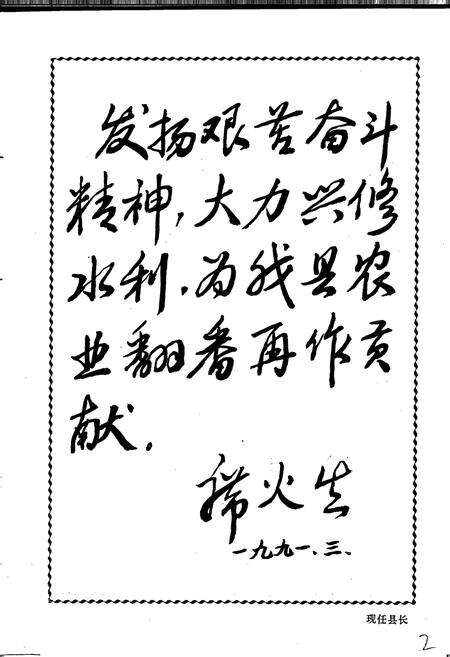 发扬艰苦奋斗
精神，大力兴修
水利，为我县农
业翻番再作贡
献。
火生
一九九一.三.
现任县长
2